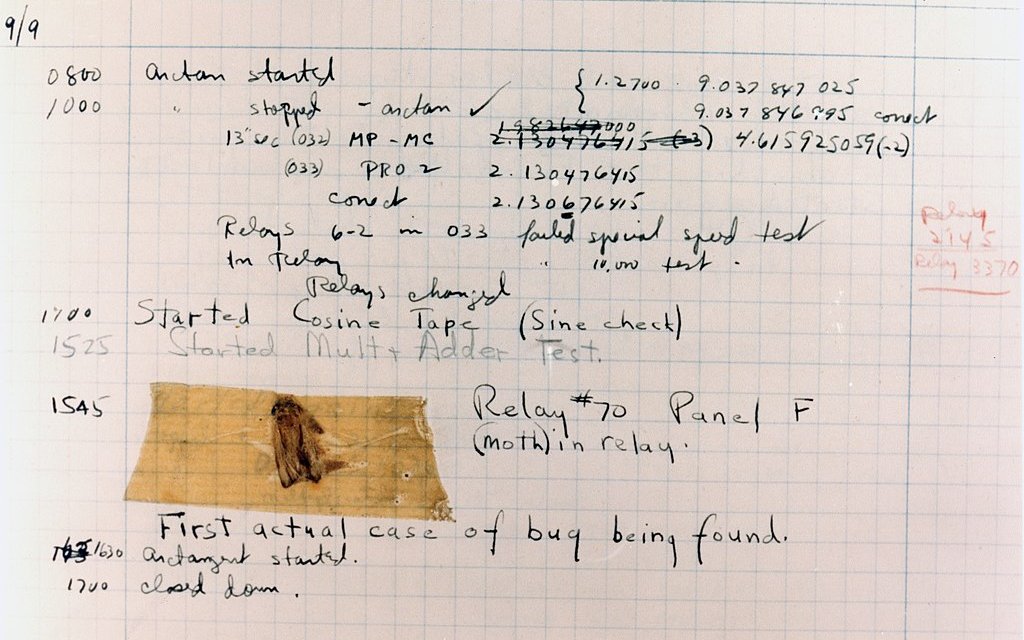 9/9
0800 arctan started { 1.2700 9.037 847 025
1000 " stopped - arctan ✓ 9.037 846 795 correct
13" sec (032) MP - MC 2.130476415 (-3) 4.615925059(-2)
(033) PRO 2 2.130476415
correct 2.130676415
Relays 6-2 in 033 failed special speed test
In Relay " 10,000 test .
Relays changed
Relay
2145
Relay 3370
1700 Started Cosine Tape (Sine check)
1525 Started Mult + Adder Test.
1545 Relay #70 Panel F
(moth) in relay.
First actual case of bug being found.
1630 arctangent started.
1700 closed down .